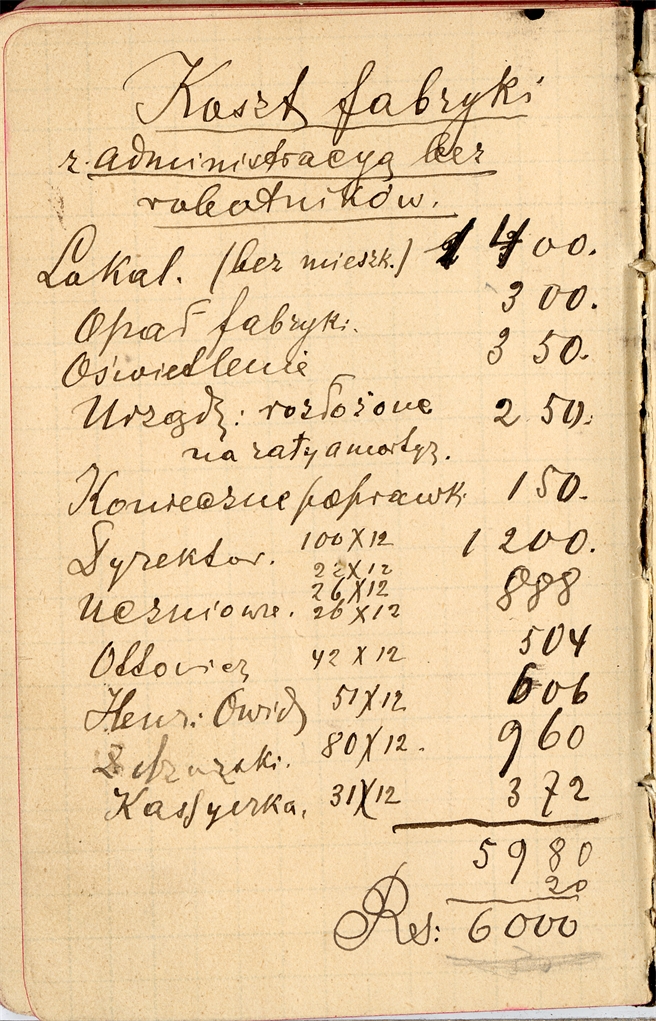 Koszt fabryki
z administracyą bez
robotników.
Lokal. (bez mieszk.) 1400.
Opał fabryki. 300.
Oświetlenie 350.
Urządz: rozłożone 250.
na raty amortyz.
Konieczne poprawki 150.
Dyrektor. 100X12 1200.
22X12
26X12 888
Uczniowie. 26X12
Ottowicz 42 X 12 504
Henr: Owidz 51X12 606
80X12. 960
Kassyerka, 31X12 372
5980
20
Rs: 6000